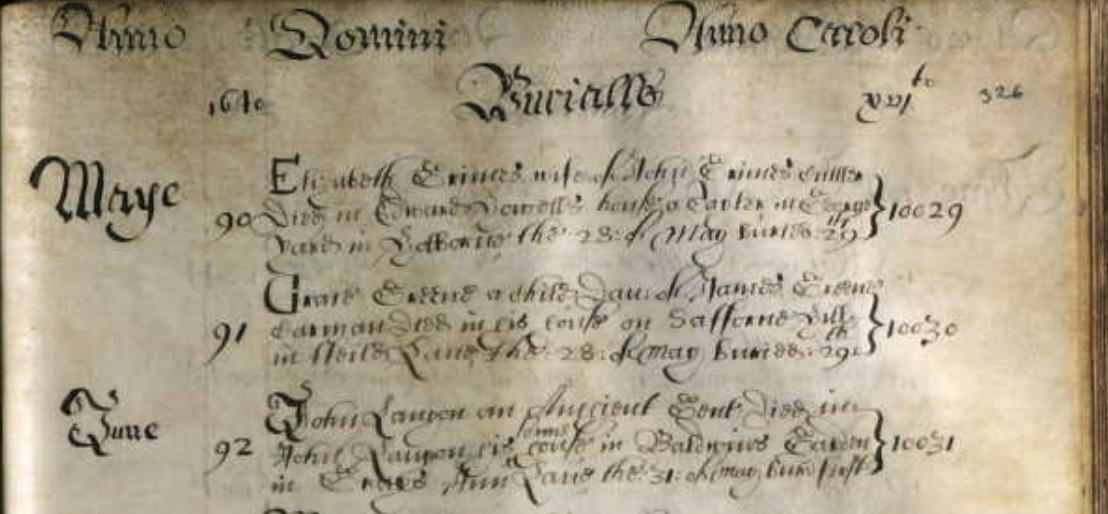 Anno Domini Anno Caroli
1640 Burialls xvi to 326
Maye
Elizabeth Grimes wife of John Grimes Cutler
90 Died in Edward Powells house a Carter in George 10029
Yard in Holborne the 28: of May buried 29 th
Grace Greene a Child Dau: of James Greene
91 Carman Died in his house on Safforne Hill 10030
in Lane the 28: of may buried: 29 th
June
John Langon an Ancient Gent: Died in
92 John Langon his sonns house in Baldwins Garden 10031
in Grays Inn Lane the: 31: of may, buried first